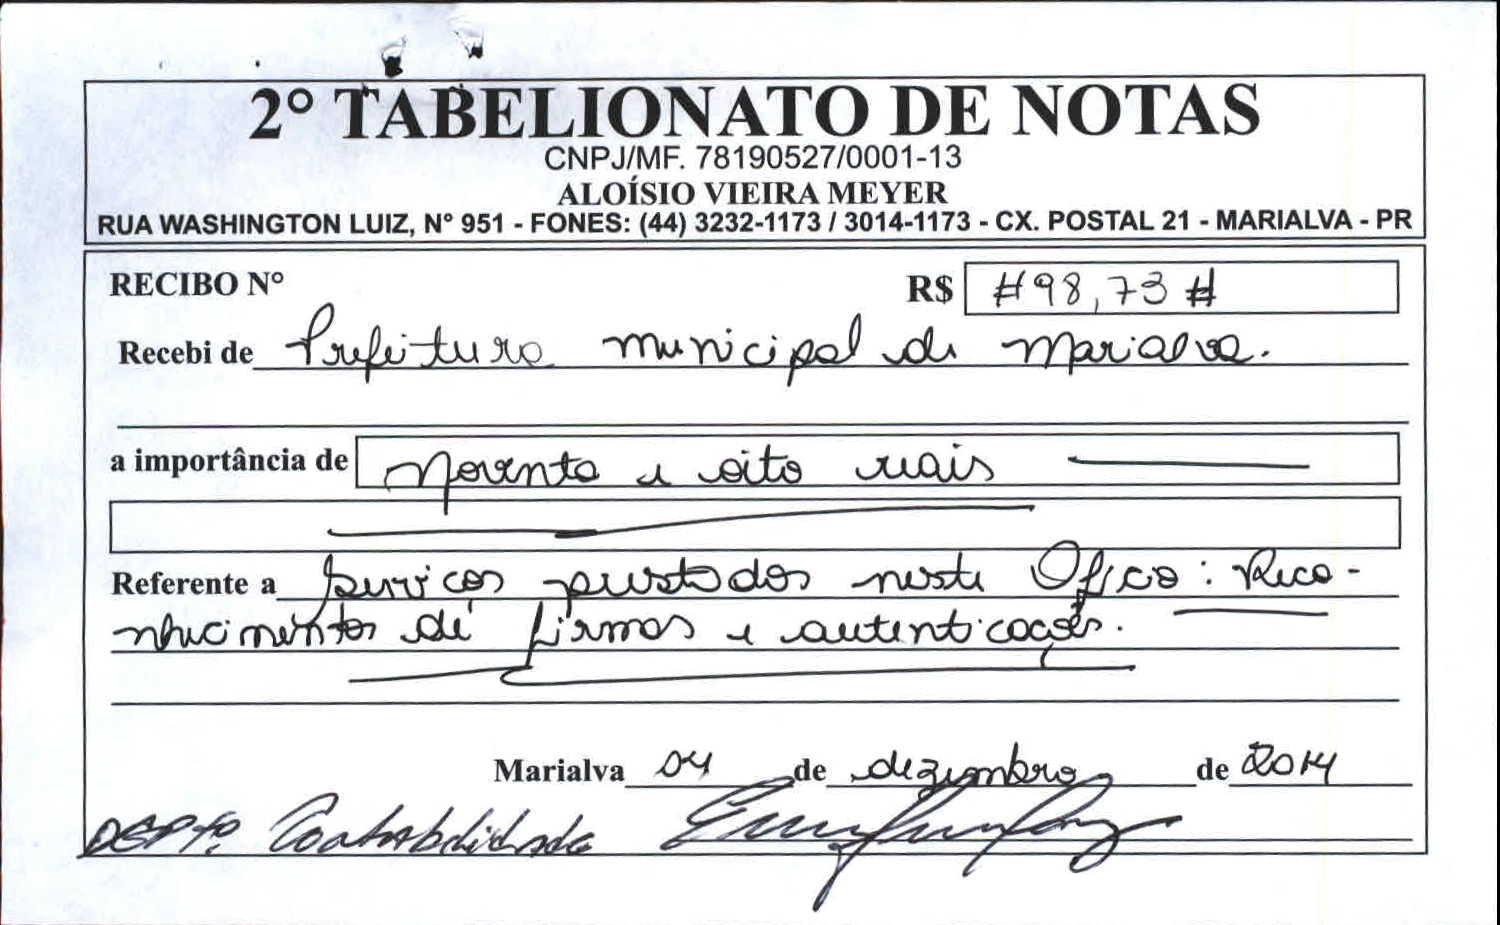 2° TABELIONATO DE NOTAS
CNPJ/MF. 78190527/0001-13
ALOÍSIO VIEIRA MEYER
RUA WASHINGTON LUIZ, N° 951 - FONES: (44) 3232-1173 / 3014-1173 - CX. POSTAL 21 - MARIALVA - PR
RECIBO N° R$ #98,73#
Recebi de Prefeitura municipal de Marialva.
a importância de Noventa e oito reais
Referente a serviços prestados neste Ofício: Reco-
nhecimentos de firmas e autenticações.
Marialva 04 de dezembro de 2014
DEPTO. Contabilidade